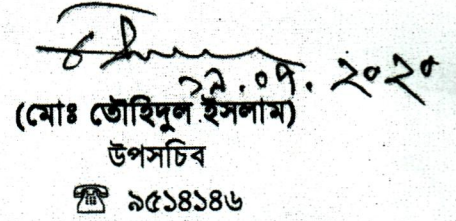 .০৭.২০২০
(মোঃ তৌহিদুল ইসলাম)
উপসচিব
☎ ৯৫১৪১৪৬